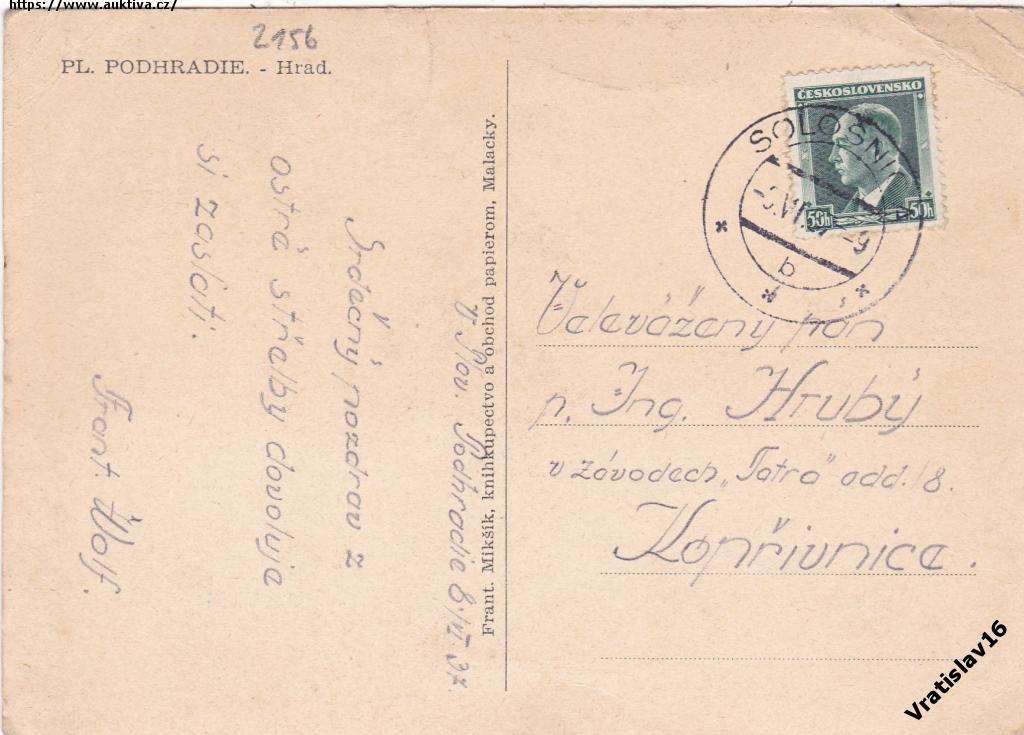 https://www.auktiva.cz/
2156
PL. PODHRADIE. - Hrad.
V Plav. Podhradie 8/VI. 37.
Srdečný pozdrav z
ostré střelby dovoluje
si zaslati.
Frant. Wolf.
Frant. Mikšík, knihkupectvo a obchod papierom, Malacky.
ČESKOSLOVENSKO
50h 50h
SOLOŠNI
b
Velevážený pan
p. Ing. Hrubý
v závodech „Tatra" odd. 18.
Kopřivnice.
Vratislav16